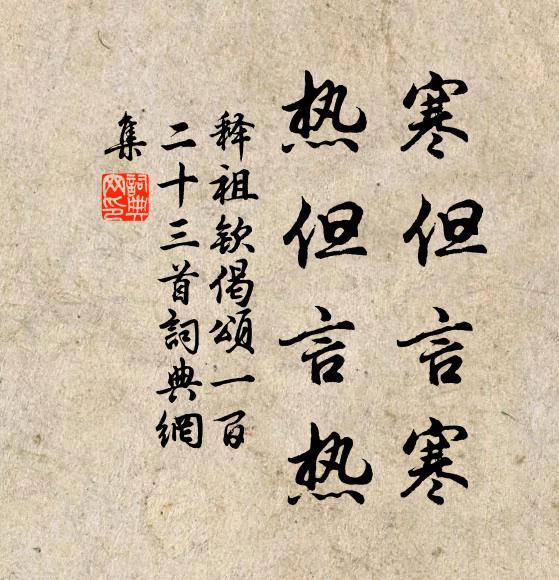 寒但言寒
热但言热
释祖钦偈颂一百
二十三首詞典網
集
詞典网印